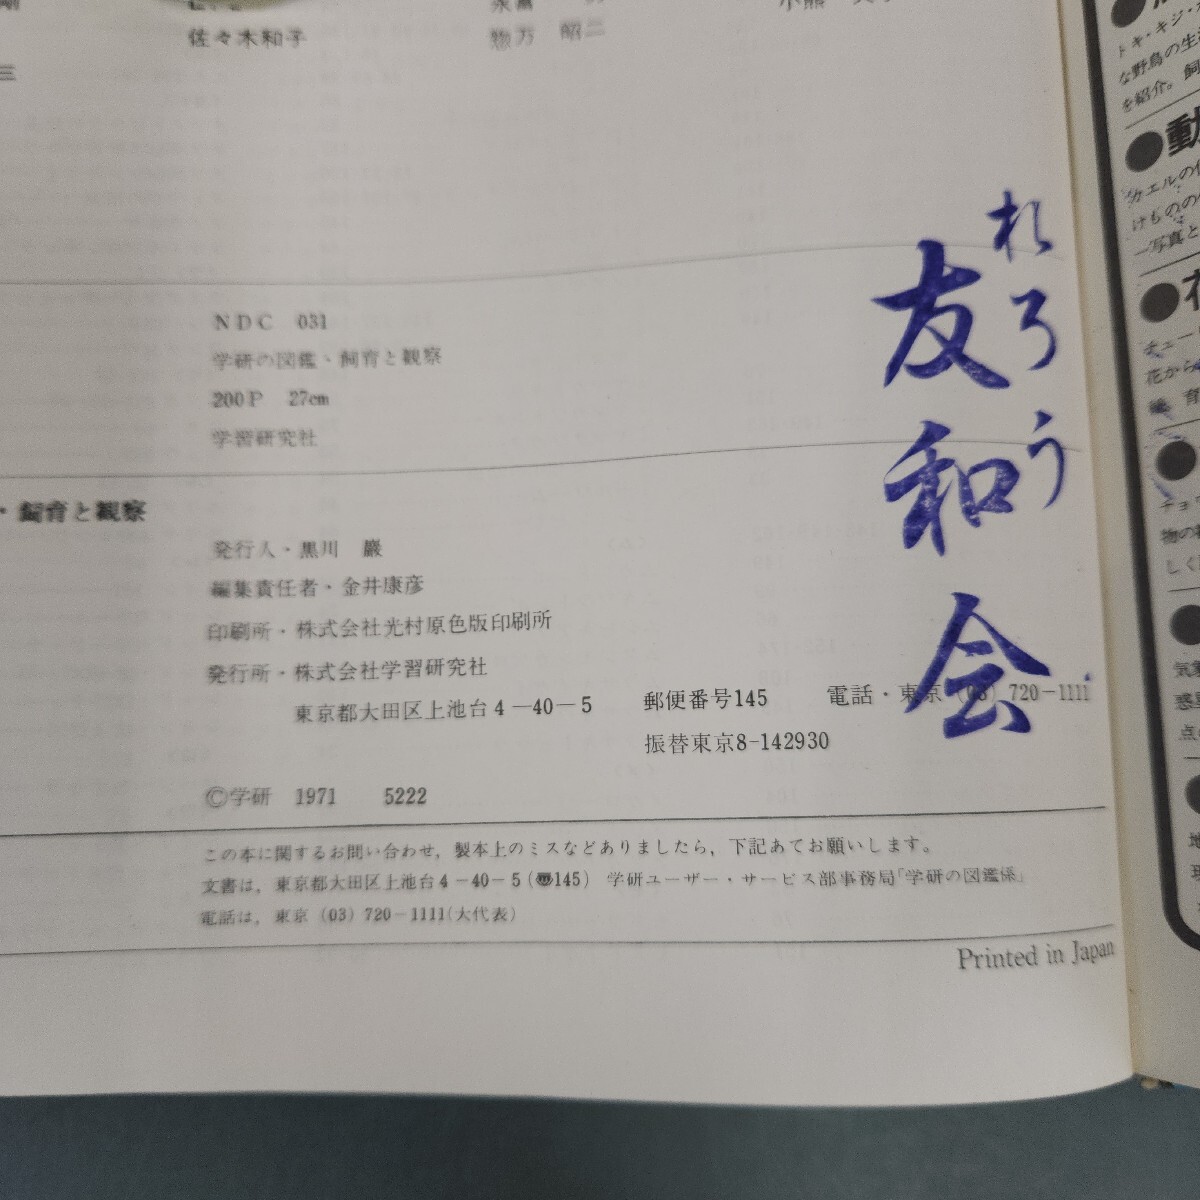 佐々木和子
惣万 昭二
NDC 031
学研の図鑑・飼育と観察
200P 27cm
学習研究社
・飼育と観察
発行人・黒川 巖
編集責任者・金井康彦
印刷所・株式会社光村原色版印刷所
発行所・株式会社学習研究社
東京都大田区上池台4-40-5 郵便番号145 電話・東京(03)720-1111
振替東京8-142930
©学研 1971 5222
この本に関するお問い合わせ,製本上のミスなどありましたら,下記あてお願いします。
文書は,東京都大田区上池台4-40-5(〠145) 学研ユーザー・サービス部事務局「学研の図鑑係」
電話は,東京(03)720-1111(大代表)
Printed in Japan
れろう
友和会
トキ・キジ・
な野鳥の生
を紹介。飼
カエルの
けものの
一写真と
チュー
花から
チョ
物の
しく
気
点
地